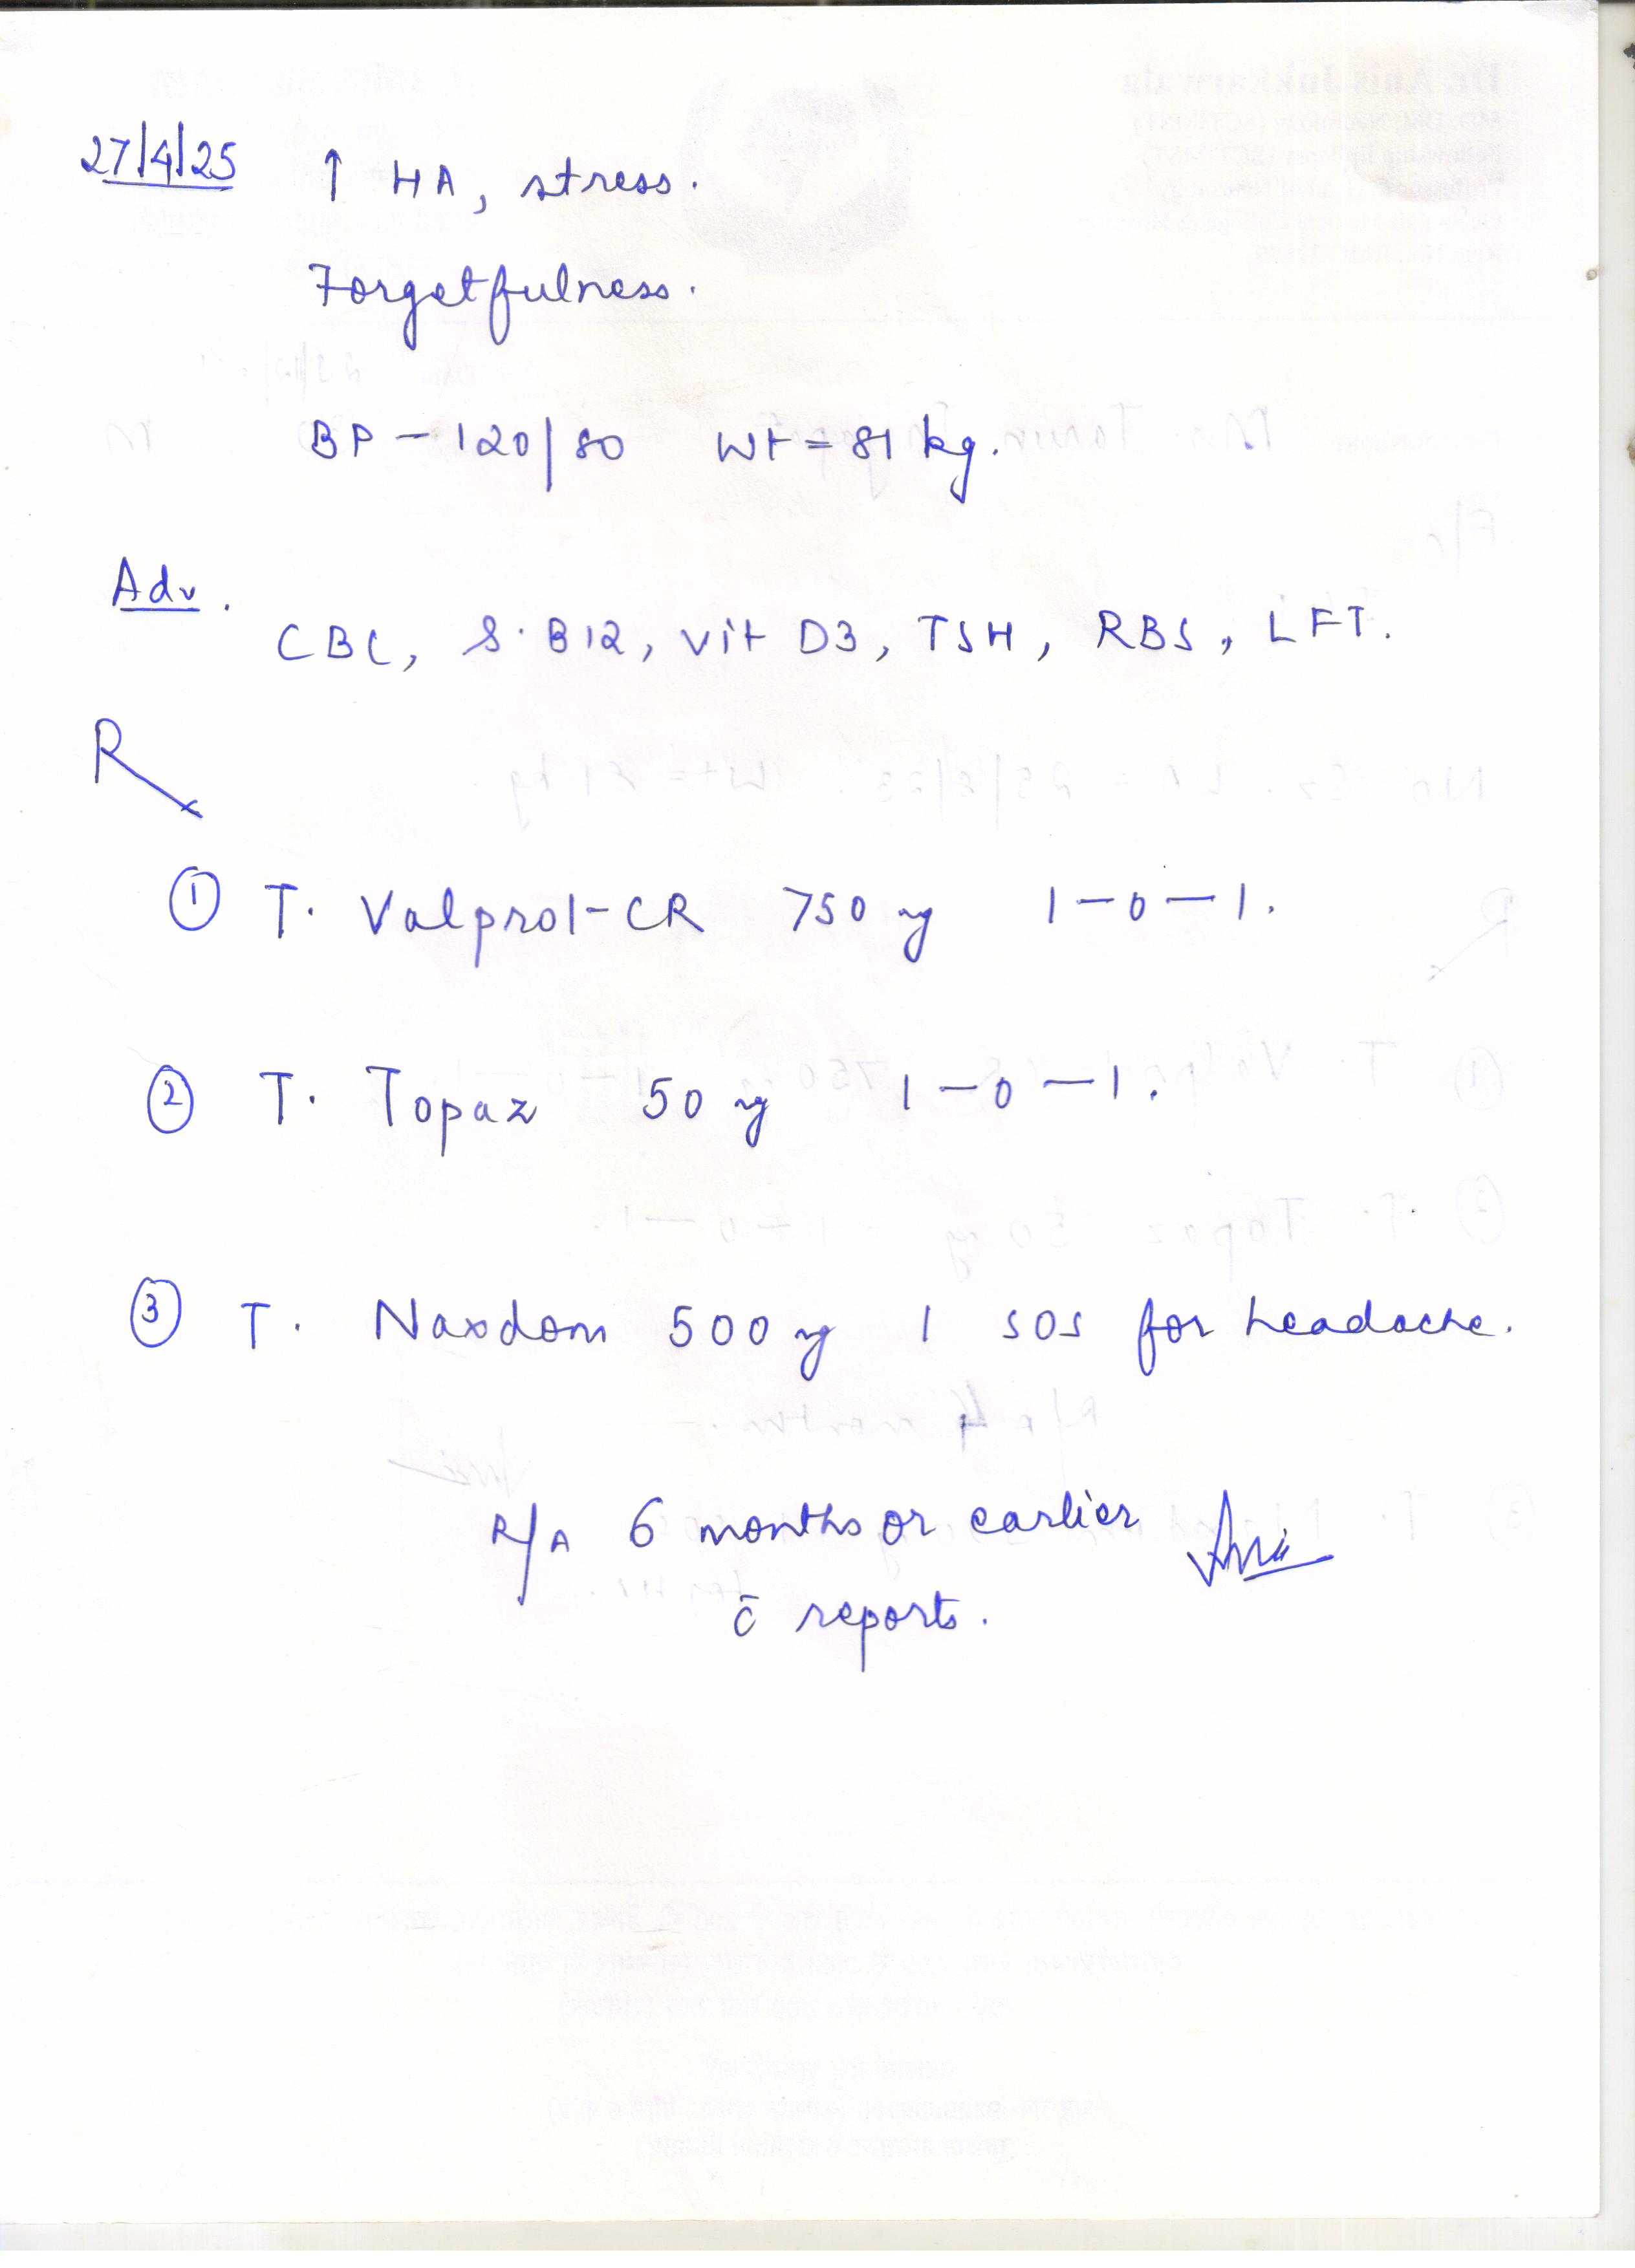 27/4/25 ↑ HA, stress.
Forgetfulness.
BP - 120/80 Wt = 81 kg.
Adv.
CBC, S. B12, Vit D3, TSH, RBS, LFT.
Rx
① T. Valprol-CR 750 mg 1-0-1.
② T. Topaz 50 mg 1-0-1.
③ T. Naxdom 500 mg 1 SOS for headache.
R/A 6 months or earlier
c̄ reports.